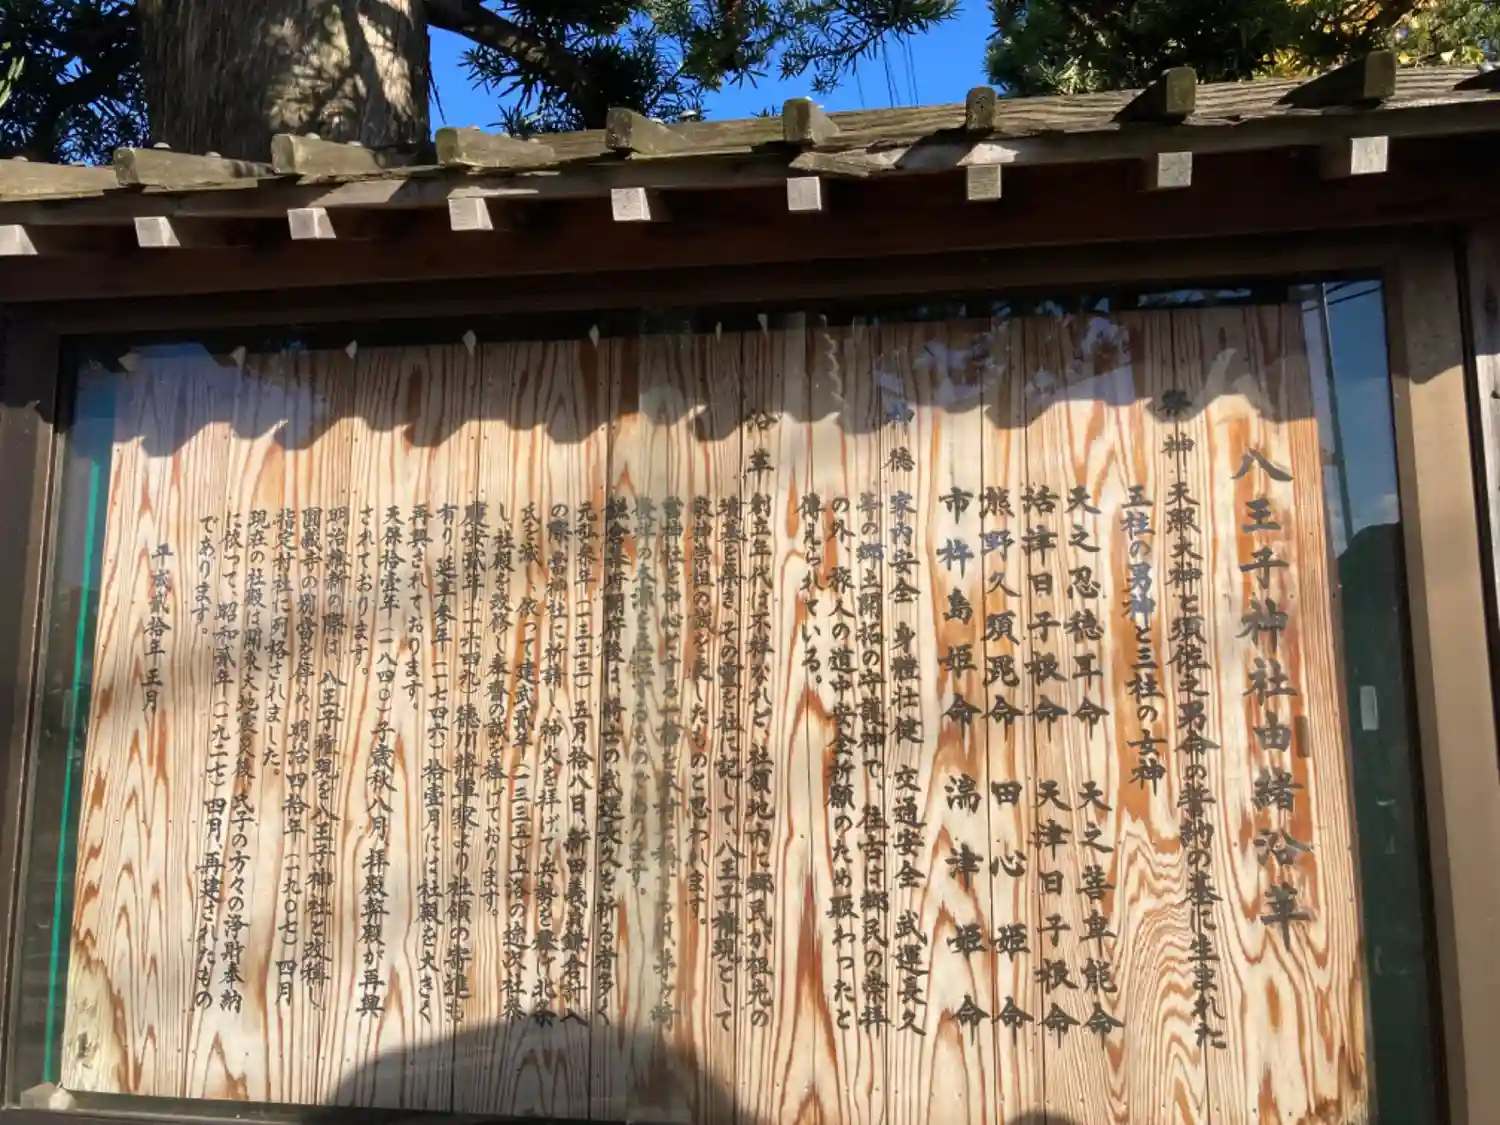 八王子神社由緒沿革
祭神 天照大神と須佐之男命の誓約の基に生まれた
五柱の男神と三柱の女神
天之忍穂耳命 天之菩卑能命
活津日子根命 天津日子根命
熊野久須毘命 田心姫命
市杵島姫命 湍津姫命
神徳 家内安全 身體壮健 交通安全 武運長久
等の郷土開拓の守護神で、往古は郷民の崇拝
の外、旅人の道中安全祈願のため賑わったと
傳えられている。
沿革 創立年代は不祥なれど、社領地内に郷民が祖先の
墳墓を築き、その霊を社に記して、八王子権現として
敬神崇祖の誠を表したものと思われます。
當神社を中心とする
鎌倉幕府開府後は、将士の武運長久を祈る者多く
元弘参年(一三三三)五月拾八日、新田義貞鎌倉討入
の際、當神社に祈請し神火を拝げて兵勢を整け北条
氏を滅、依って建武貳年(一三三五)上洛の途次社参
し、社殿を改修し奉齋の誠を捧げております。
慶安貳年(一六四九)徳川将軍家より社領の寄進も
有り、延享参年(一七四六)拾壹月には社殿を大きく
再興されております。
天保拾壹年(一八四〇)子歳秋八月、拝殿幣殿が再興
されております。
明治維新の際は、八王子権現を八王子神社と改稱し
圓蔵寺の別當を停め、明治四拾年(一九〇七)四月
指定村社に列格されました。
現在の社殿は関東大地震災後、氏子の方々の浄財奉納
に依って、昭和貳年(一九二七)四月、再建されたもの
であります。
平成貳拾年 正月